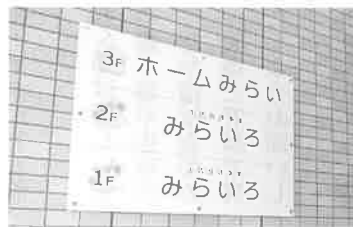 3F ホームみらい
2F みらいろ
1F みらいろ